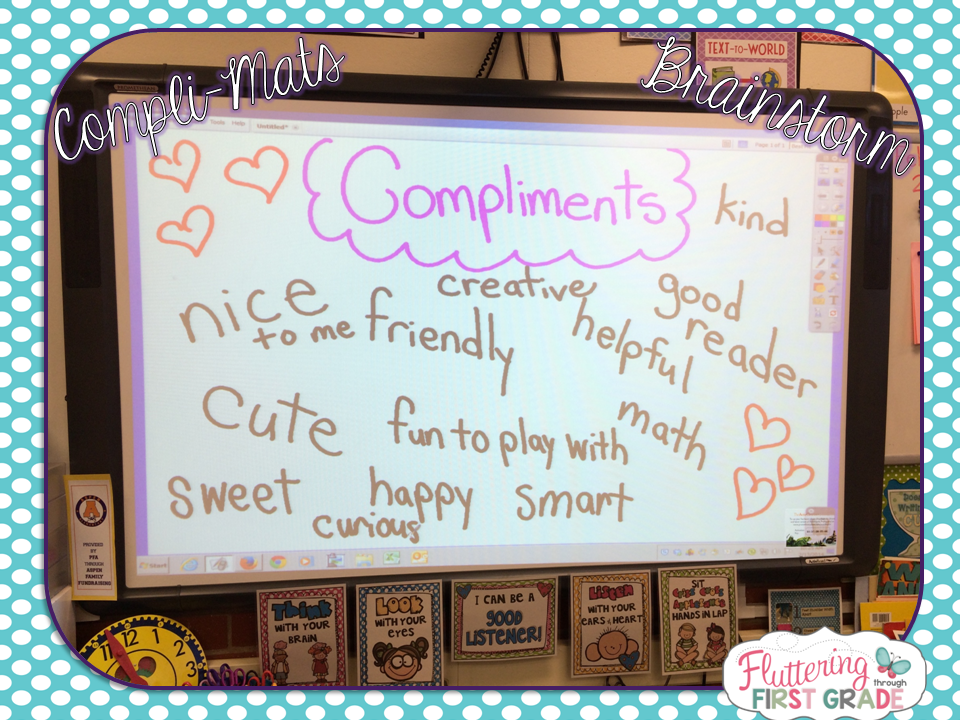 Compli-Mats
Brainstorm
TEXT-TO-WORLD
Tools Help Untitled*
Page 1 of 1
Compliments
kind
nice
to me
friendly
creative
helpful
good
reader
cute
fun to play with
math
sweet
happy
smart
curious
Start
PROVIDED
BY
PFA
THROUGH
ASPEN
FAMILY
FUNDRAISING
11 12 1
10 2
Think
WITH YOUR
BRAIN
Look
WITH YOUR
EYES
I CAN BE A
GOOD
LISTENER!
Listen
WITH YOUR
EARS & HEART
SIT
HANDS IN LAP
Fluttering
through
FIRST GRADE